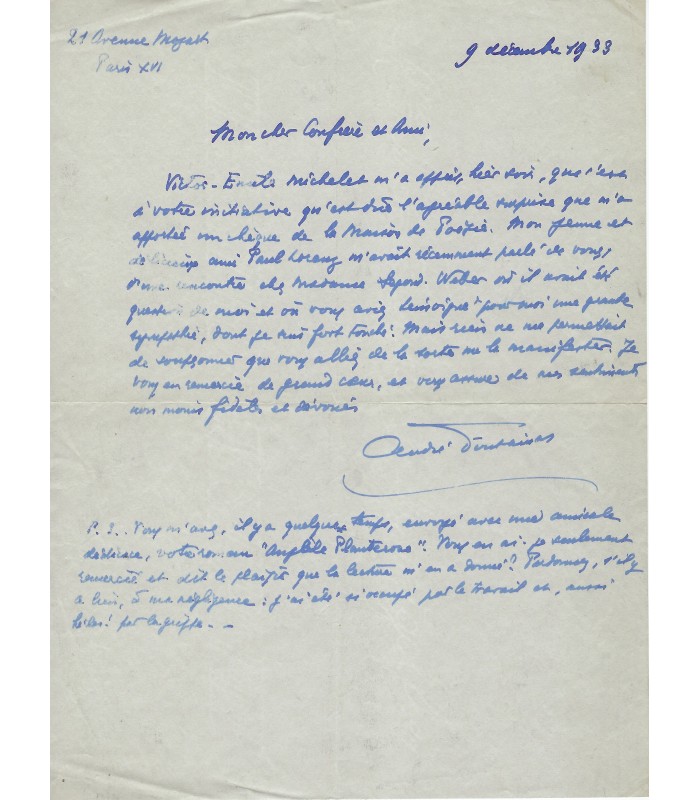 21 Avenue Mozart
Paris XVI
9 décembre 1933
Mon cher Confrère et Ami,
Victor-Emile Michelet m'a appris, hier soir, que c'est
à votre initiative qu'est due l'agréable surprise que m'a
apportée un chèque de la Maison de Poésie. Mon jeune et
délicieux ami Paul Lorenz m'avait récemment parlé de vous,
d'une rencontre chez Madame Weber où il avait été
question de moi et où vous aviez témoigné pour moi une grande
sympathie, dont je suis fort touché. Mais rien ne me permettait
de soupçonner que vous alliez de la sorte me la manifester. Je
vous en remercie de grand cœur, et vous assure de mes sentiments
non moins fidèles et dévoués
André Fontainas
P.S. Vous m'avez, il y a quelque temps, envoyé avec une amicale
dédicace, votre roman "Planterose". Vous en ai-je seulement
remercié et dit le plaisir que la lecture m'en a donné? Pardonnez, s'il y
a lieu, à ma négligence : j'ai été si occupé par le travail et, aussi
hélas! par la grippe. —